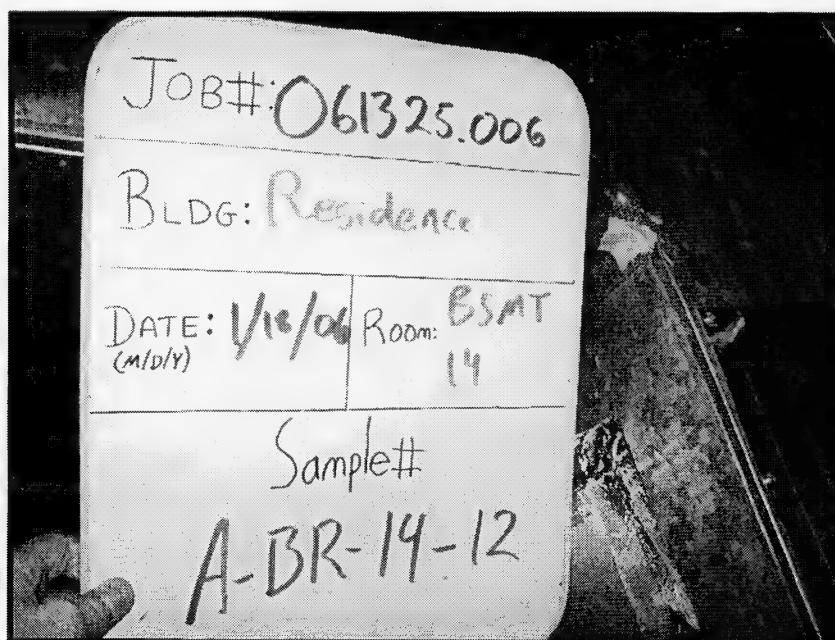 JOB#: 061325.006
BLDG: Residence
DATE: 1/18/06
(M/D/Y)
ROOM: BSMT
14
Sample#
A-BR-14-12